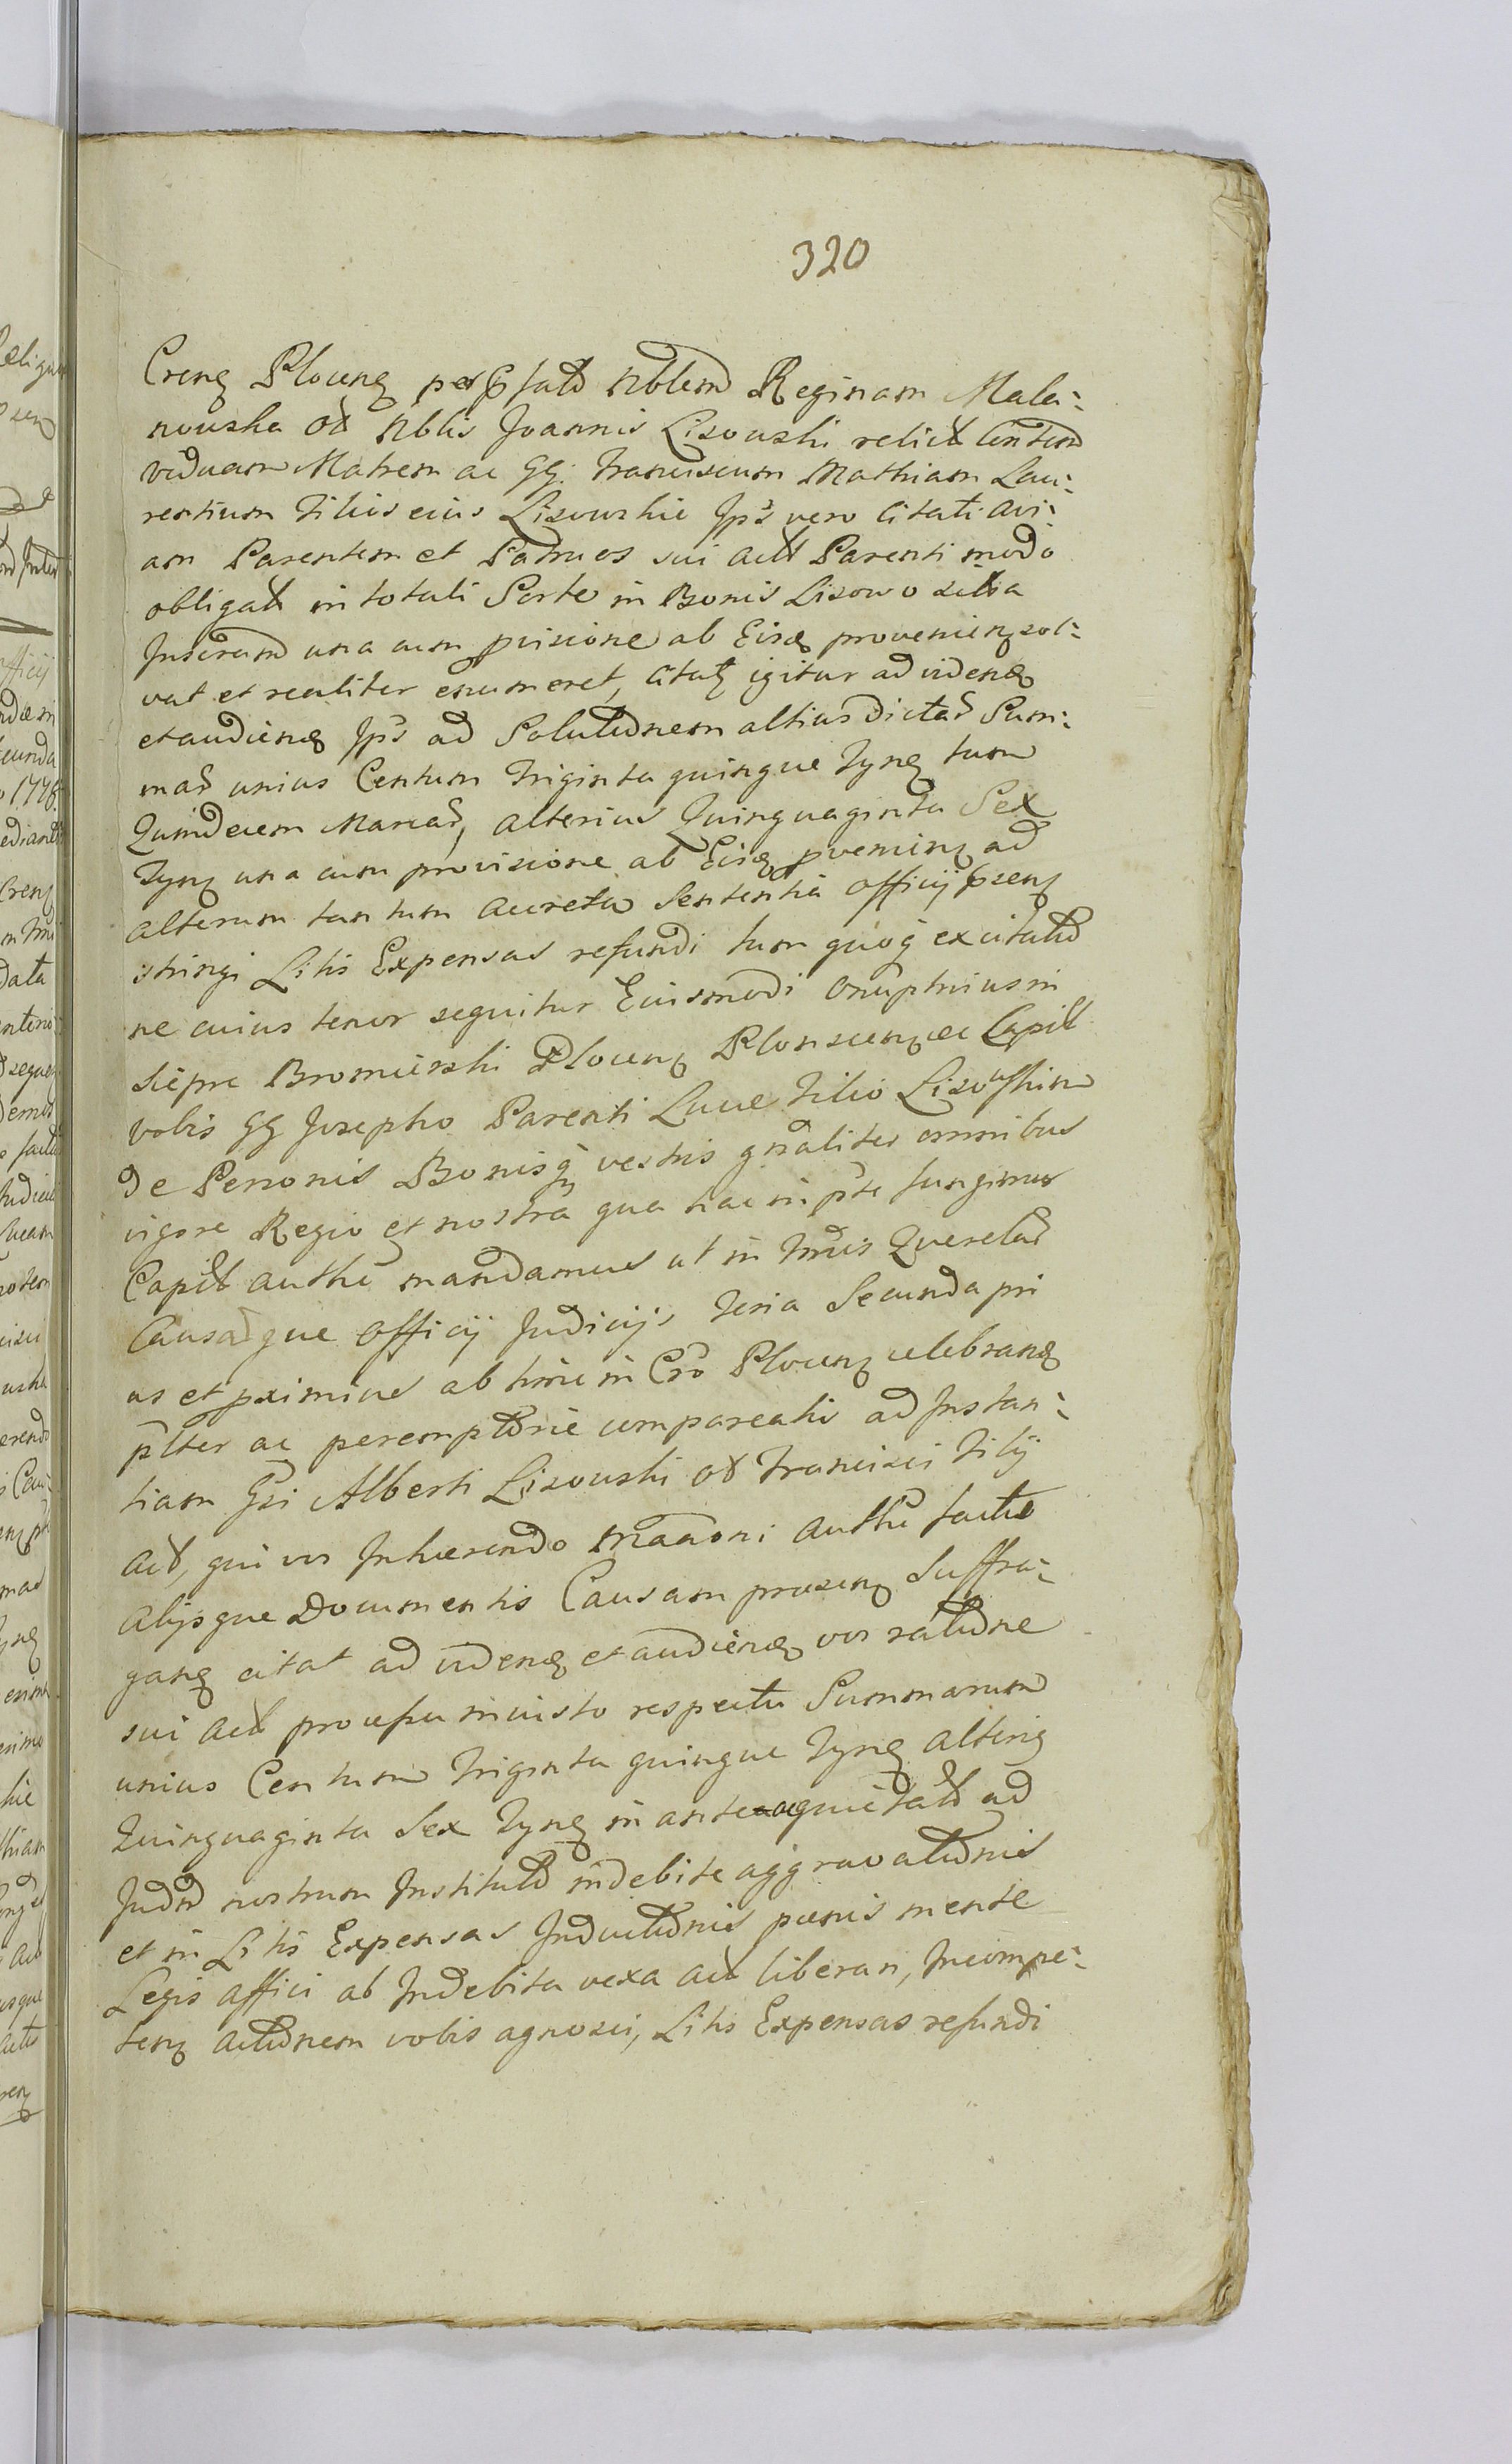 320
Crenȝ Plocenȝ per pfatd Nblemd Reginam Mala-
nowska Od Nblis Joannis Lisowski relictd Contemd
viduam Matrem ac GG. Franciscum Mathiam Lau-
rentium Filios eius Lisowskie Jps vero Citati Avi-
am Parentem et Patruos sui Actd Parenti modo
obligatd in totali Sorte in Bonis Lisowo sitta
Inscramd una cum pvisione ab Eisq provenienȝ sol-
vat et realiter enumeret, Citatȝ igitur ad videnȝ
et audienȝ Jps ad Solutdnem altius dictar Sum-
mar unius Centum Triginta quinque Tynȝ tum
Quindecem Marcar, alterius Quinquaginta Sex
Tynȝ una cum provisione ab Eisq pveninȝ ad
alterum tantum accreta Sententia Officij psenȝ
stringi Litis Expensas refundi tum quoq excitatd
ne cuius tenor sequitur Eiusmodi Onuphrius in
Siepre Bromierski Plocenȝ Plonscenȝ ac Capitl
Vobis GG Josepho Parenti Luce Filio Lisowskim
de Personis Bonisq vestris gnaliter omnibus
vigore Regio et nostra qua hac in pte fungimur
Capitl authe mandamus ut in Tmis Querelar
Causarque Officij Judicijs Feria Secunda pri
us et pximius ab hinc in Cro Plocenȝ celebranȝ
plter ac peremptorie compareatis ad Instan-
tiam Gsi Alberti Lisowski Od Francisci Filij
Actd, qui vos Inhaerendo Mattoni Authe factae
alijsque Documentis Causam praesenȝ Suffra-
ganȝ citat ad videnȝ et audienȝ vos ratdne
sui Actd processu iniusto respectu Summarum
unius Centum Triginta quinque Tynȝ alteriȝ
Quinquaginta Sex Tynȝ in ante quietatd ad
Judm nostrum Institutd indebite aggravatdnis
et in Litis Expensas Inductdnis paenis mente
Legis affici ab Indebita vexa Actd liberari, Incompe-
tenȝ Actdnem vobis agnosci, Litis Expensas refundi